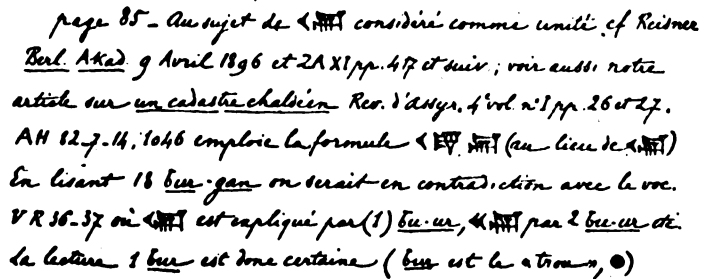 page 85 - Au sujet de 𒌋𒃷 considéré comme unité, cf Reisner
Berl. Akad. 9 Avril 1896 et ZA XI pp. 417 et suiv ; voir aussi notre
article sur un cadastre chaldéen Rev. d'assyr. 4e vol. n° I pp. 26 et 27.
AH 82-7-14, 1046 emploie la formule (au lieu de 𒌋𒃷)
En lisant 18 bur-gan on serait en contradiction avec le voc.
V R 36-37 où 𒌋𒃷 est expliqué par (1) bu-ur, 𒌋𒌋𒃷 par 2 bu-ur etc.
La lecture 1 bur est donc certaine ( bur est le « trou », ●)